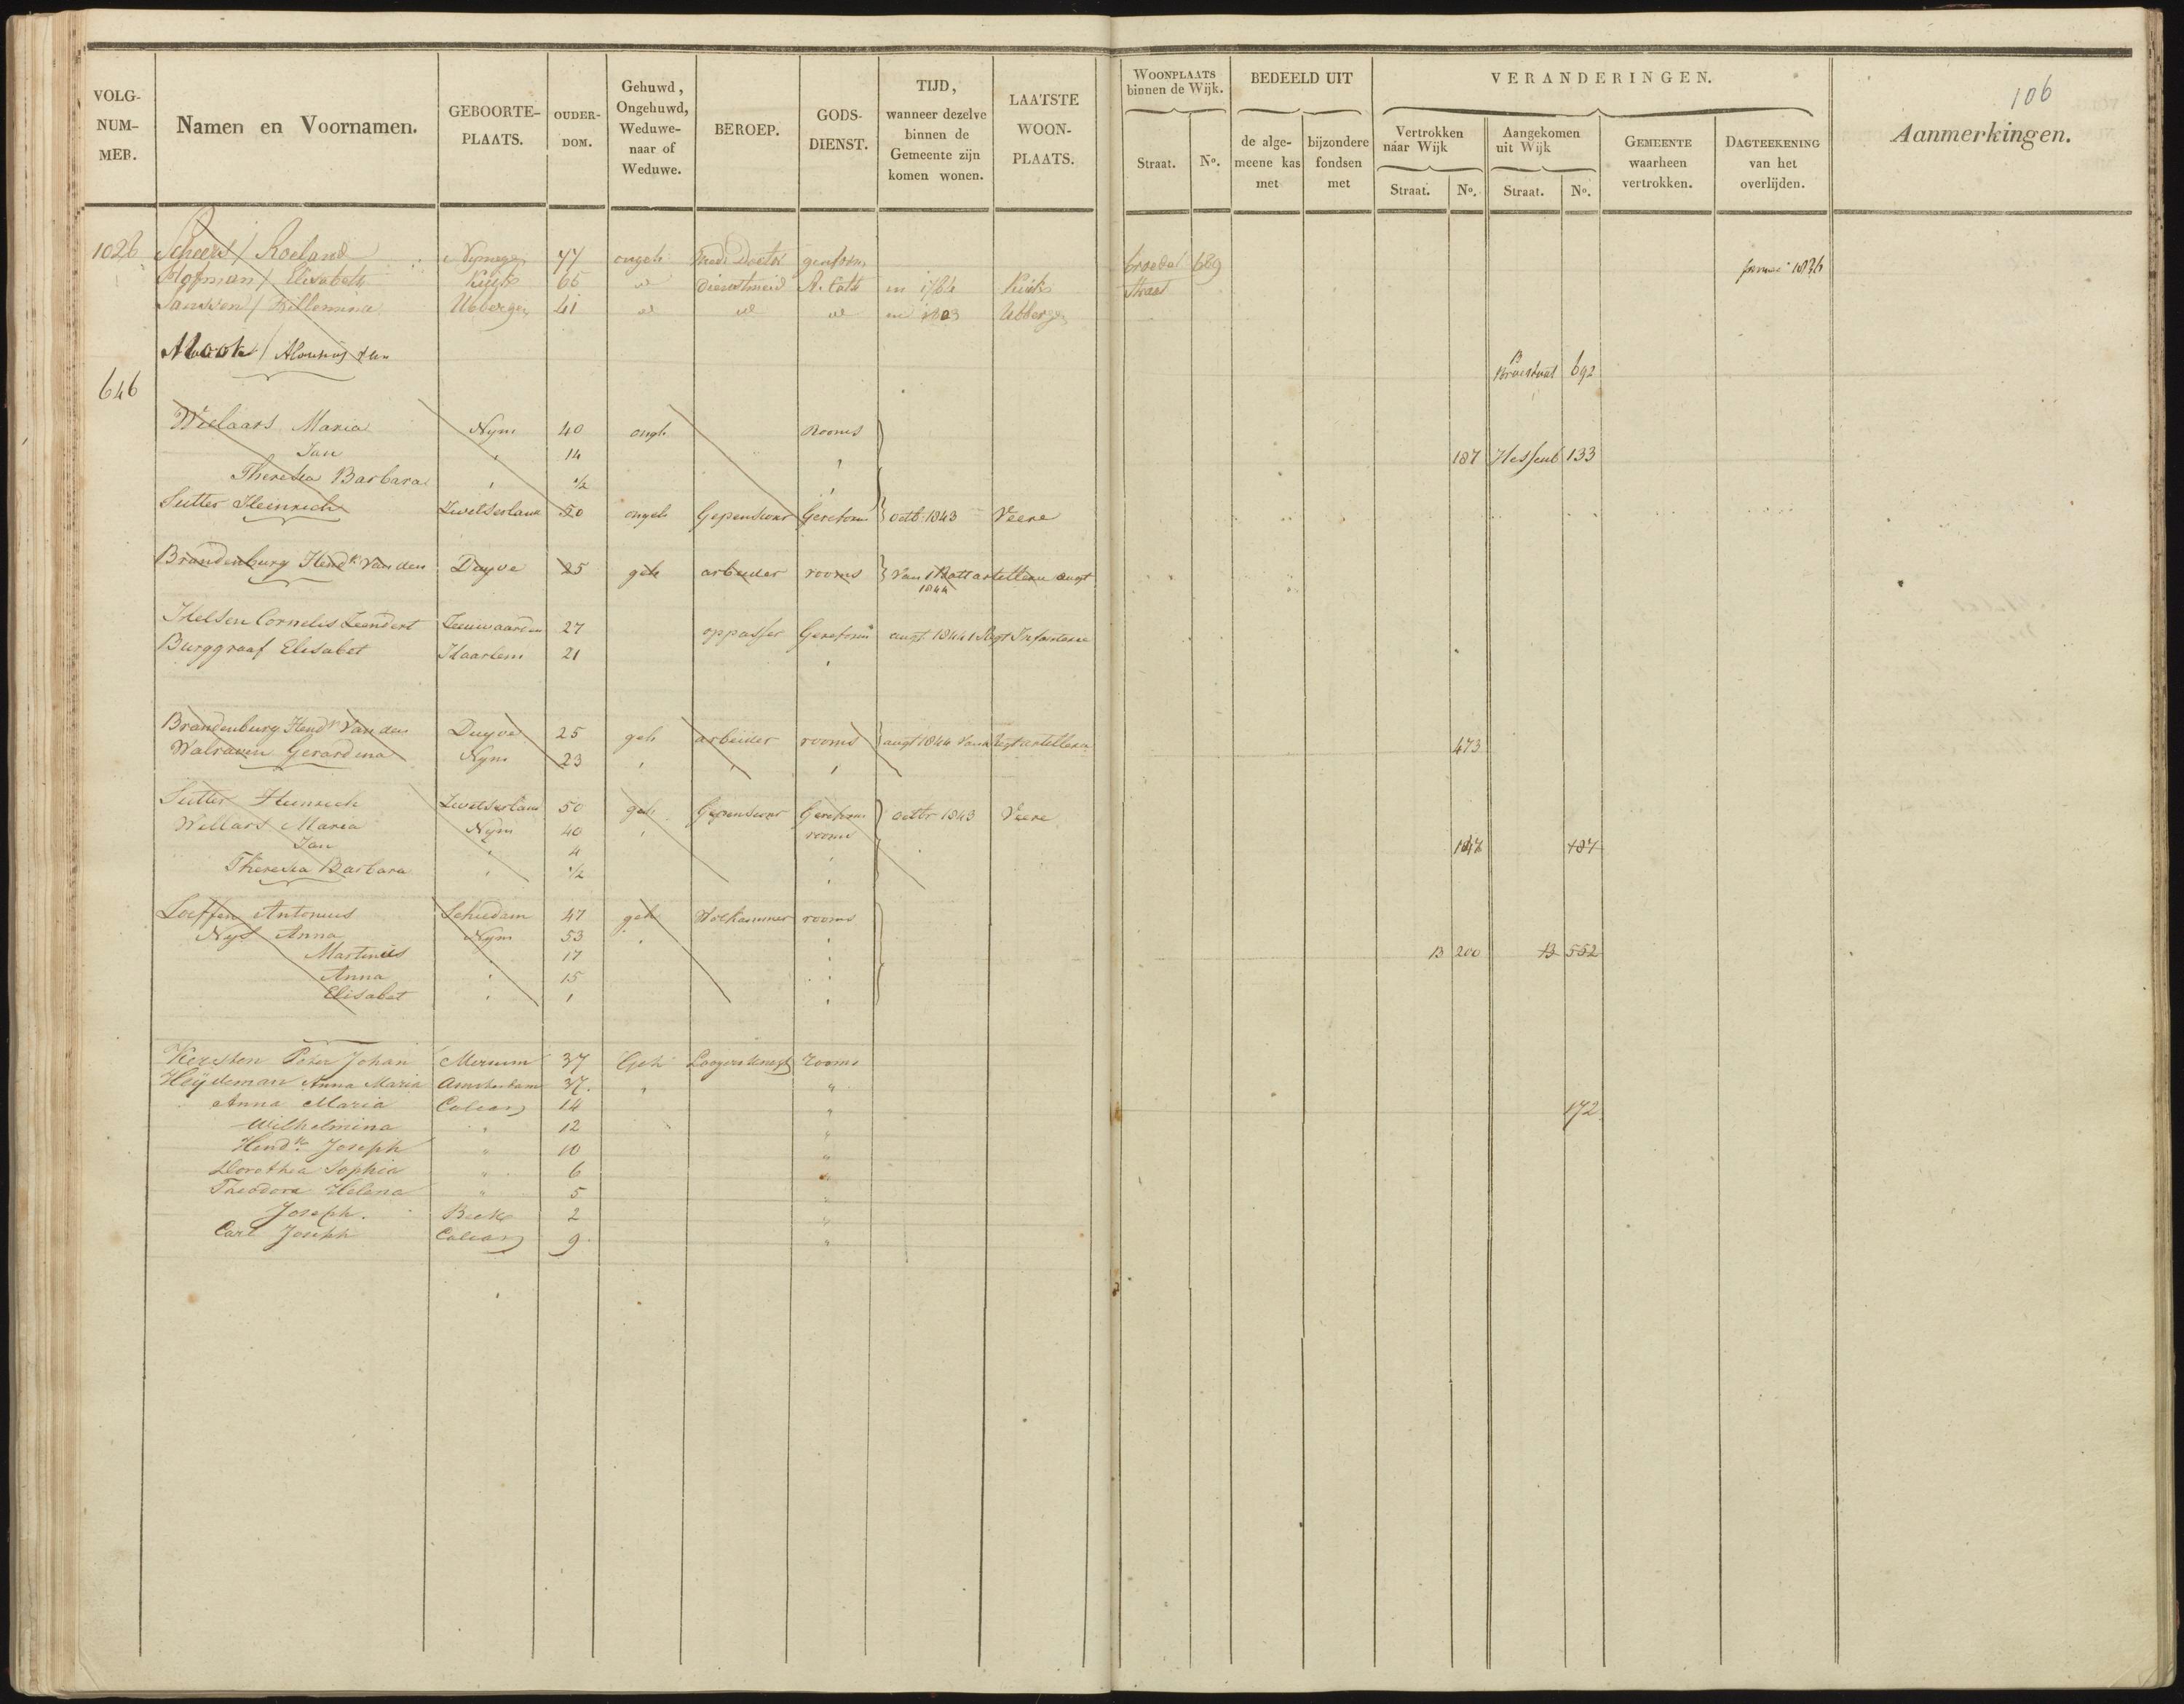 VOLG-NUM-MER. Namen en Voornamen. GEBOORTE-PLAATS. OUDER-DOM. Gehuwd, Ongehuwd, Weduwe-naar of Weduwe. BEROEP. GODS-DIENST. TIJD, wanneer dezelve binnen de Gemeente zijn komen wonen. LAATSTE WOON-PLAATS.
WOONPLAATS binnen de Wijk. Straat. No. BEDEELD UIT de alge-meene kas met bijzondere fondsen met VERANDERINGEN. Vertrokken naar Wijk Straat. No. Aangekomen uit Wijk Straat. No. GEMEENTE waarheen vertrokken. DAGTEEKENING van het overlijden. Aanmerkingen.
106
1026 Scheers / Roeland Nymegen 77 ongeh Med: Doctor gereform broeder straat 689 1836
Hofman / Elisabeth 66 dienstmeid R. Cath in 1784
Janssen / Willemina Ubbergen 41 in 1803 Ubbergen
Alouisius
646 B 692
Wielaars Maria Nym 40 ongh Rooms
Jan " 14 " 187 Hessenb 133
Theresia Barbara " ½ "
Sutter Heinrich Zwitserland 50 ongeh Gepensioner Gereform octb 1843 Veere
Brandenburg Hendk van den Duyve 25 geh arbeider rooms van 1 Batt artellerie augt 1844
Helsen Cornelis Leendert Leeuwaarden 27 oppasser Gereform augt 1844 1 Regt Infanterie
Burggraaf Elisabet Haarlem 21 "
Brandenburg Hendk van den Duyve 25 geh arbeider rooms augt 1844 van Regt artellerie 473
Walraven Gerardina Nym 23 " " "
Sutter Heinrich Zwitserland 50 geh Gepensioner Gereform octbr 1843 Veere
Willars Maria Nym 40 " rooms
Jan " 4 " 147 187
Theresia Barbara " ½ "
Loeffen Antonius Schiedam 47 geh Wolkammer rooms
Nijs Anna Nym 53 " "
Martinus " 17 " B 200 B 552
Anna " 15 "
Elisabet " 1 "
Kersten Peter Johan 37 Geh Loogersknegt Rooms
Heÿdeman Anna Maria Amsterdam 37. " "
Anna Maria Calcar 14 " 172
Wilhelmina " 12 "
Hendk Joseph " 10 "
Dorothea Sophia " 6 "
Theodora Helena " 5 "
Joseph. Beek 2 "
Carl Joseph Calcar 9 "